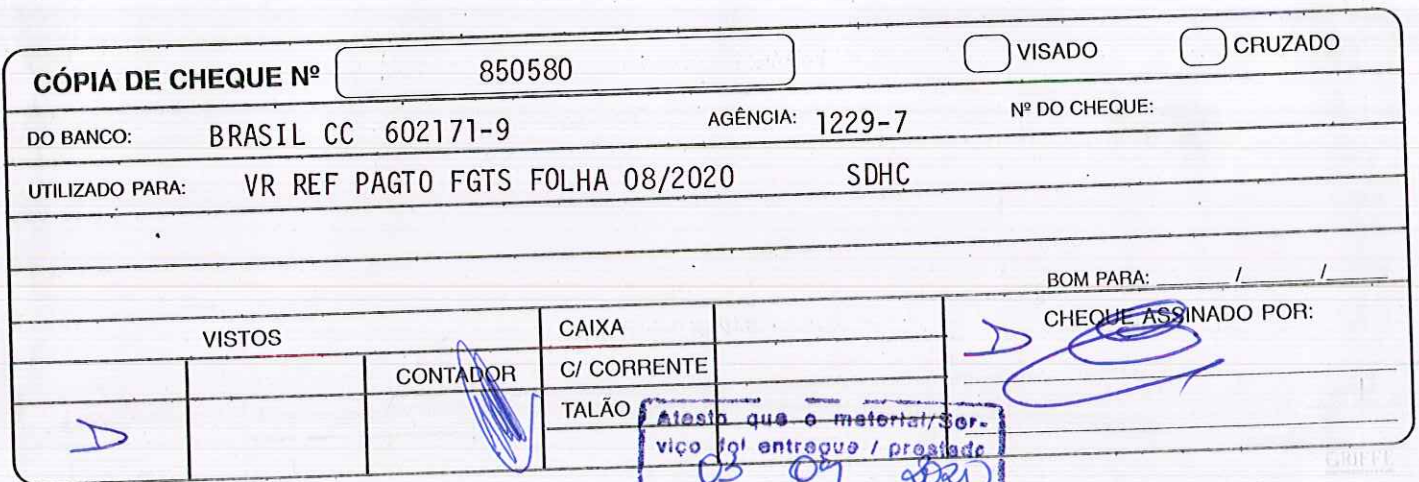 CÓPIA DE CHEQUE Nº 850580 VISADO CRUZADO
DO BANCO: BRASIL CC 602171-9 AGÊNCIA: 1229-7 Nº DO CHEQUE:
UTILIZADO PARA: VR REF PAGTO FGTS FOLHA 08/2020 SDHC
BOM PARA: ______/______/______
VISTOS
CONTADOR
CAIXA
C/ CORRENTE
TALÃO
CHEQUE ASSINADO POR:
Atesto que o material/Ser-
viço foi entregue / prestado
03 09 2020
GRIFFE